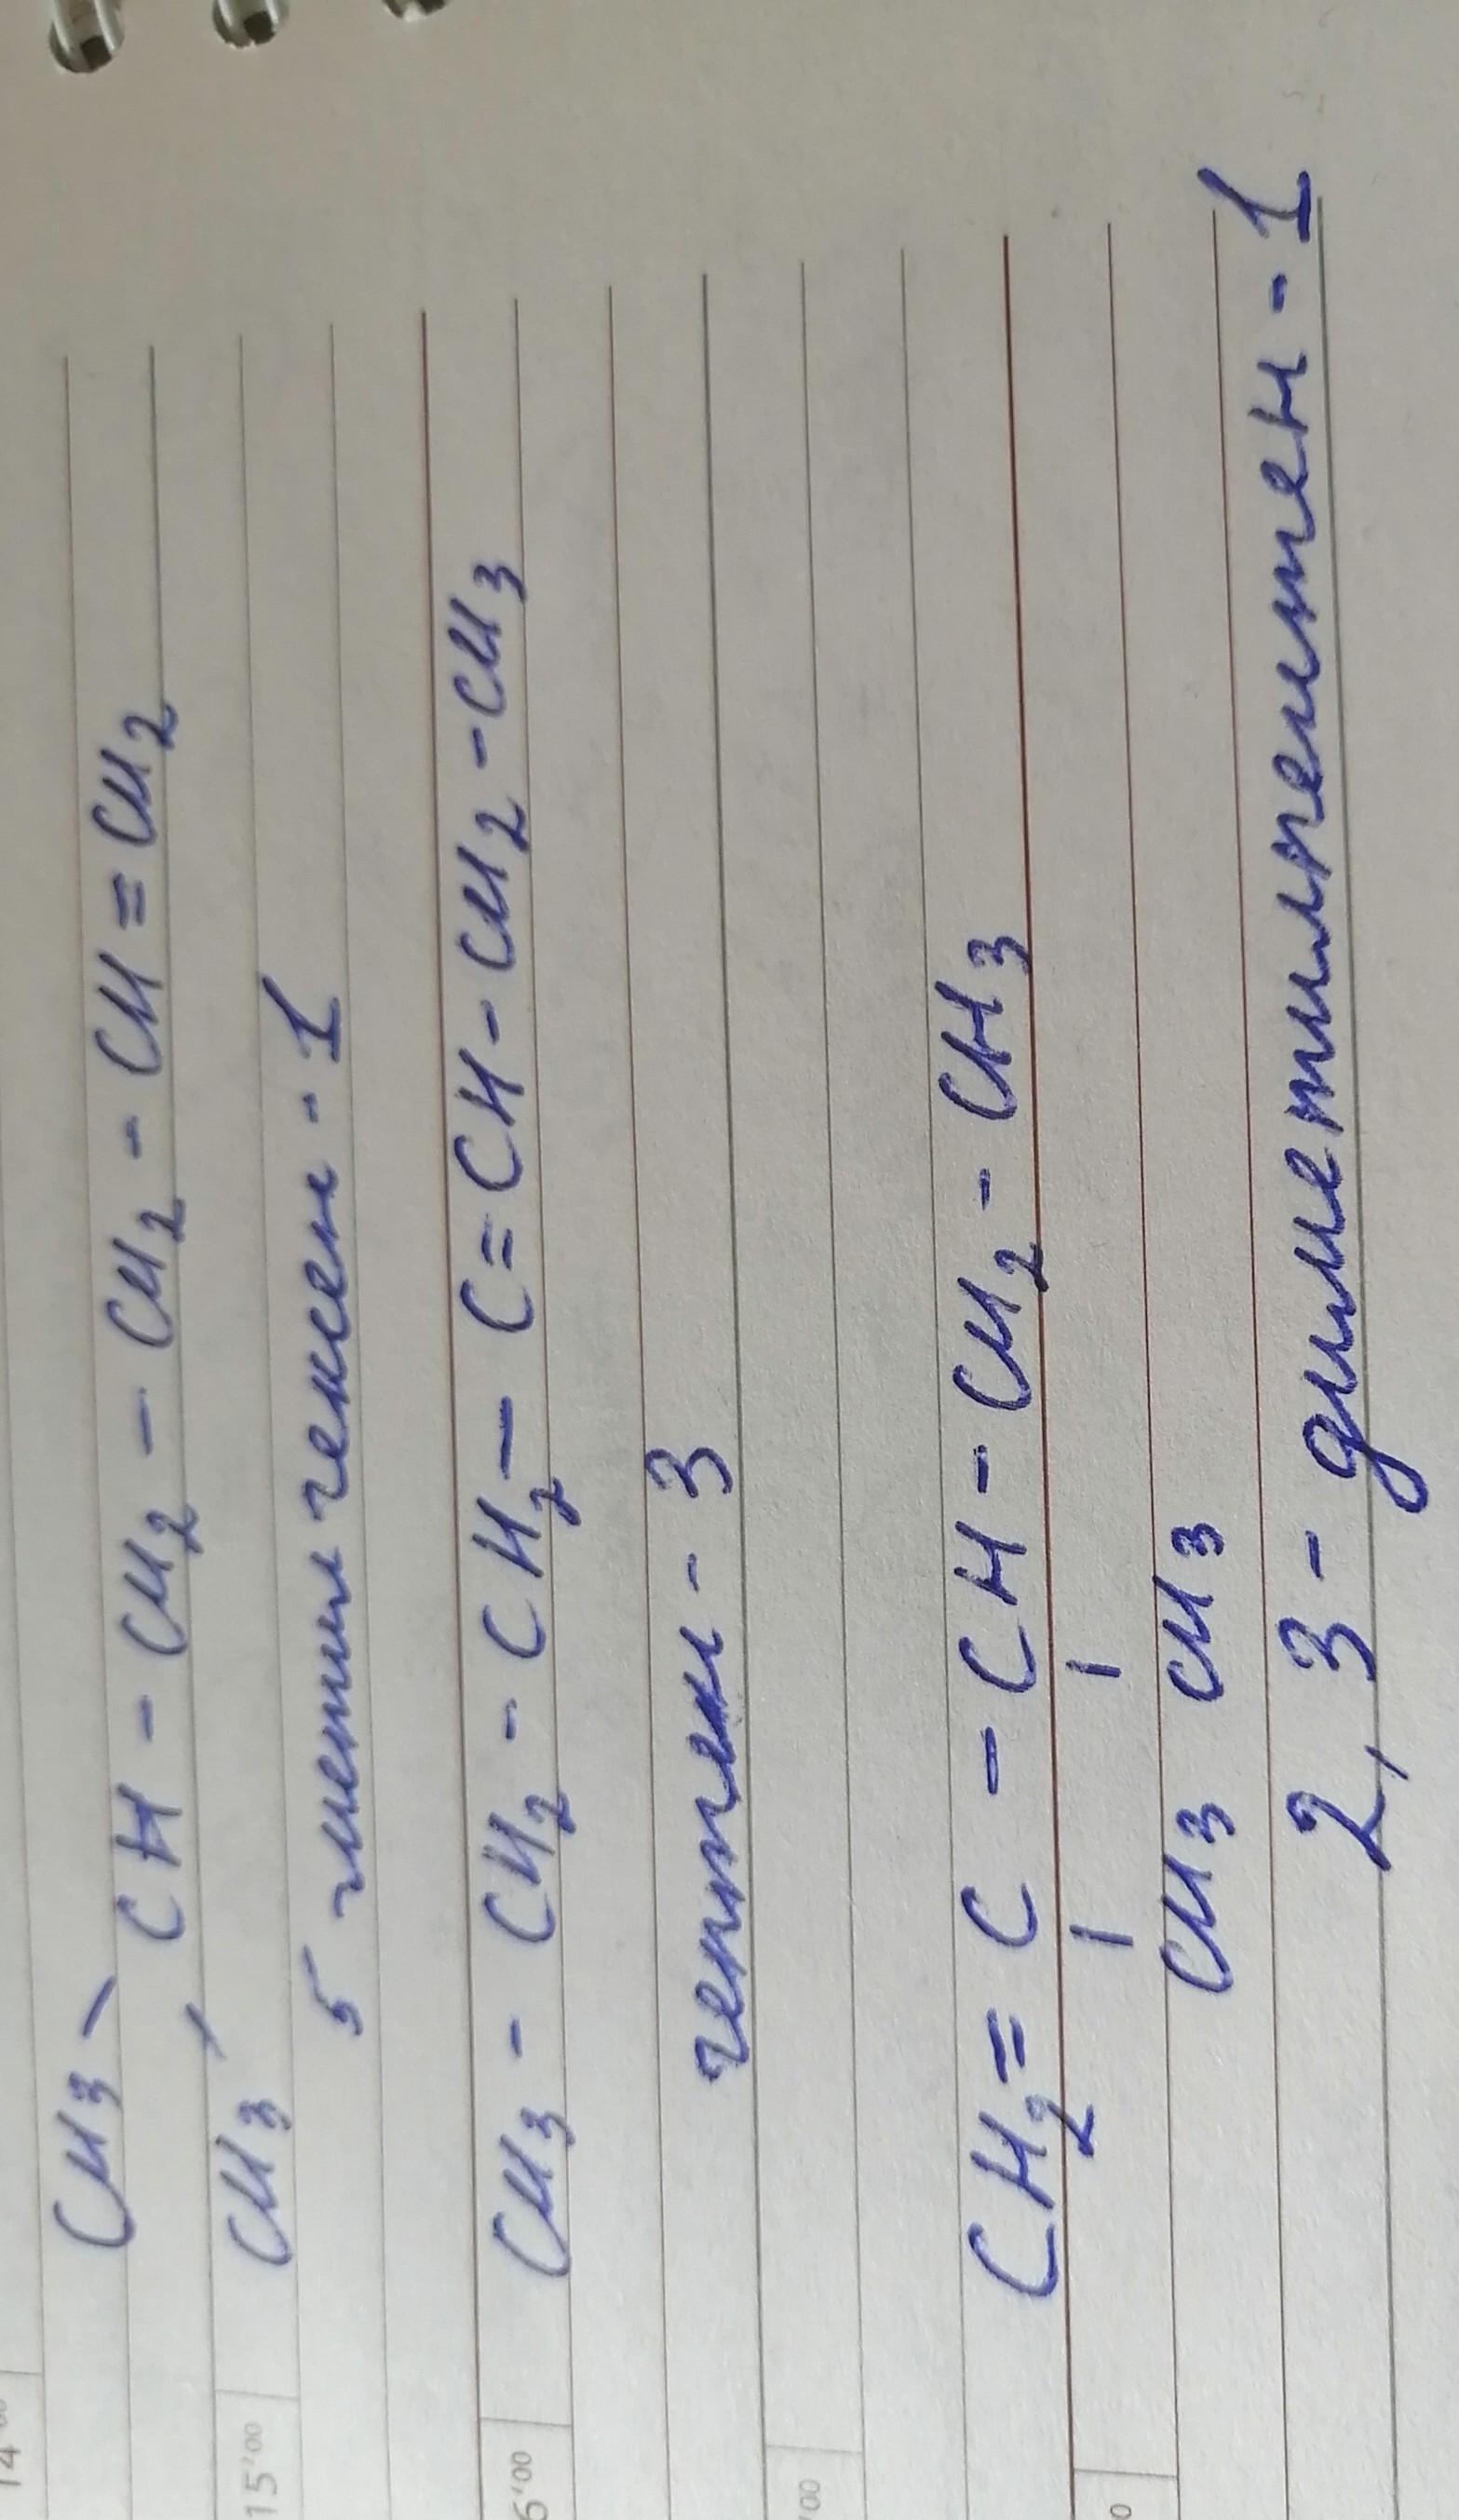 CH3
CH - CH2 - CH2 - CH = CH2
CH3
5 метил гексен - 1
CH3 - CH2 - CH2 - C = CH - CH2 - CH3
гептен - 3
CH2 = C - CH - CH2 - CH3
CH3 CH3
2, 3 - диметилпентен - 1
15'00
6'00
'00
0